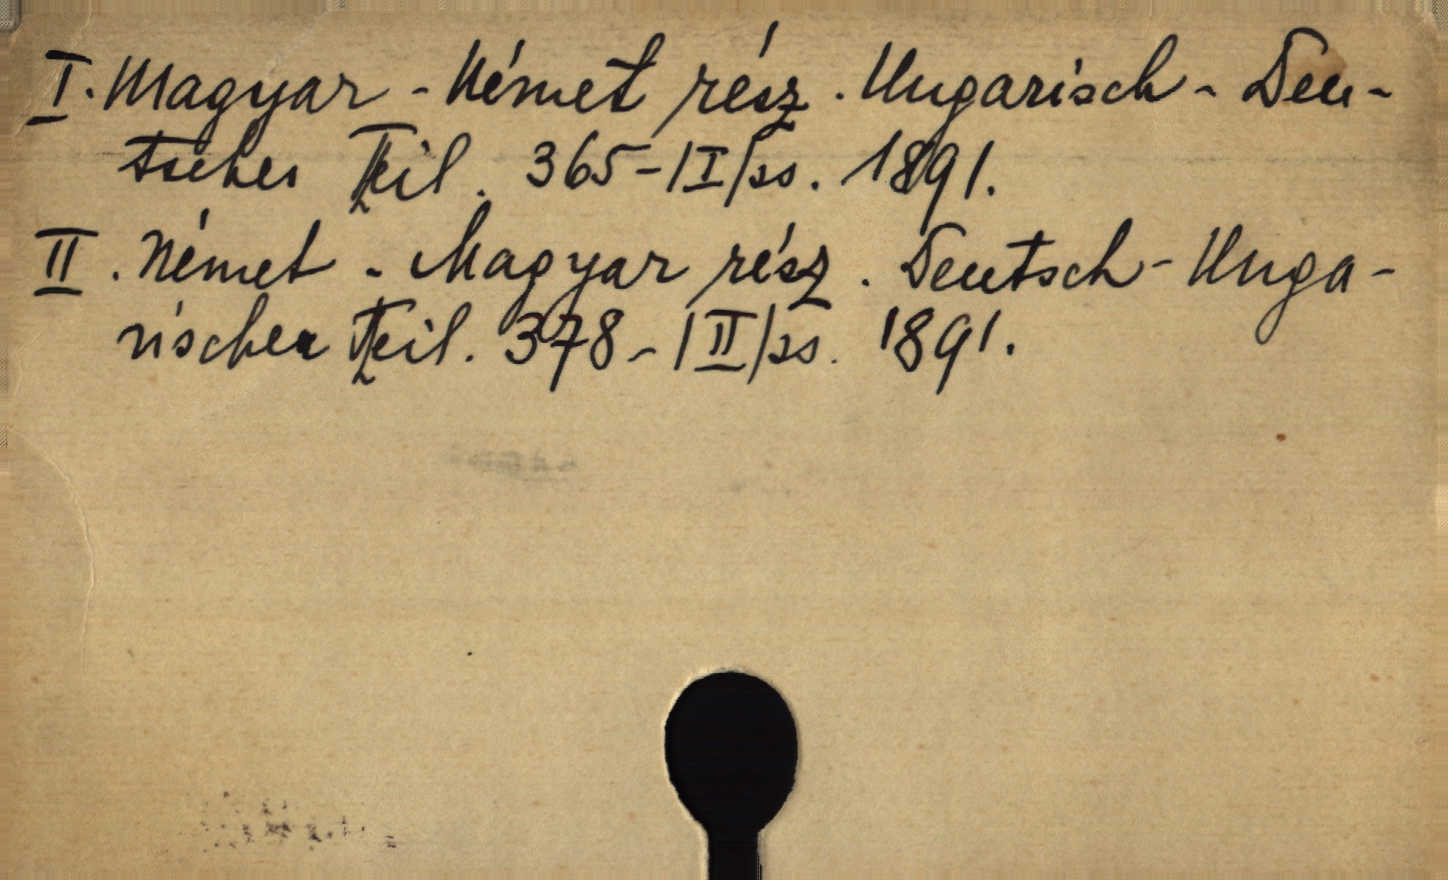 I. Magyar - Német rész. Ungarisch - Deu-
tscher Teil. 365-|I|ss. 1891.
II. Német - Magyar rész. Deutsch - Unga-
rischer Teil. 378-|II|ss. 1891.